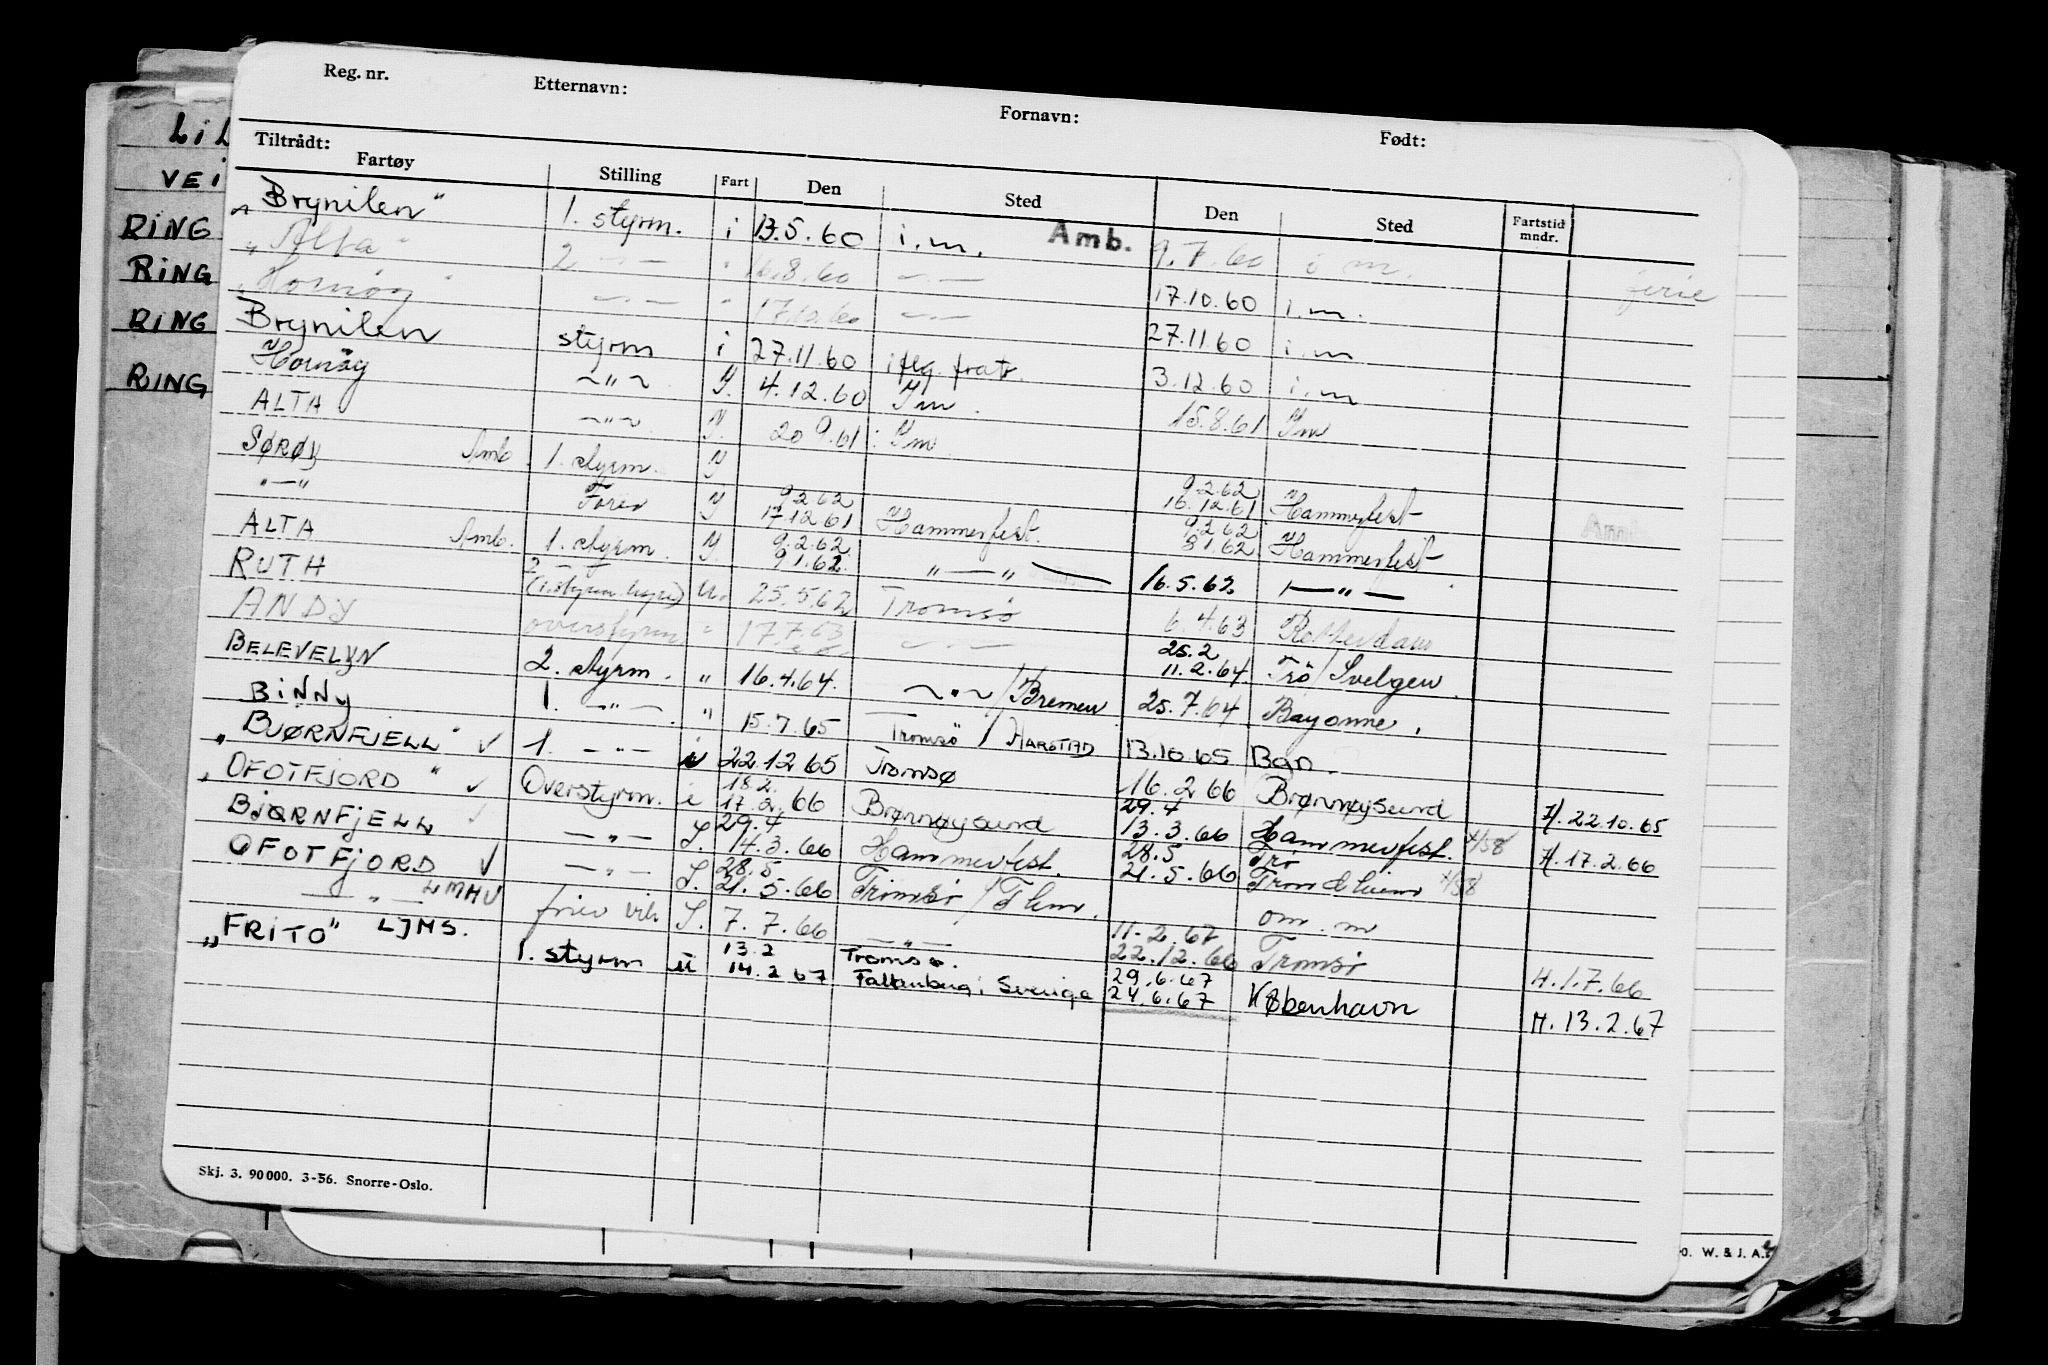 Reg. nr. Etternavn: Fornavn: Født:
Tiltrådt:
Fartøy Stilling Fart Den Sted Den Sted Fartstid mndr.
"Brynilen" 1. styrm. i 13.5.60 i.m. Amb. 9.7.60 i m. ferie
"Alta" 2 —"— " 16.8.60 —"— 17.10.60 i.m.
"Hornøy" —"— " 17.10.60 —"— 27.11.60 i.m
Brynilen styrm i 27.11.60 i flg. fratr. 3.12.60 i.m
Hornöy ~"~ Y. 4.12.60 Ym. 15.8.61 Ym
ALTA ~"~ Y. 20 9.61 Ym
SØRØY Amb 1. styrm. Y 9.2.62 16.12.61 Hammerfest
"—" Fører Y 9.2.62 17.12.61 Hammerfest. 9.2.62 8.1.62 Hammerfest
ALTA Amb. 1. styrm. Y. 9.2.62 9.1.62. "—" 16.5.62 —"—
RUTH 2 —"— (1. styrm. hyre) U. 25.5.62 Tromsø 6.4.63 Rotterdam
ANDY overstyrm " 17.7.63 —"— 25.2 11.2.64. Trö/Svelgen.
BELEVELYN 2. styrm. " 16.4.64. ~"~/Bremen 25.7.64 Bayonne.
BiNNy 1. —"—. " 15.7.65 Tromsö / HARSTAD 13.10.65 Bgn.
"BJØRNFJELL" ✓ 1. —"— i 22.12.65 Tromsø 16.2.66 Brønnøysund H. 22.10.65
"OFOTFJORD" ✓ Overstyrm. i 18.2. 17.2.66 Brønnøysund 29.4 13.3.66 Hammerfest. H. 17.2.66
BJØRNFJELL ✓ —"— S. 29.4 14.3.66 Hammerfest. 28.5 21.5.66 Trö Trondheim
OFOTFJORD ✓ —"— S. 28.5 21.5.66 Tromsö / Thm. om. m
—"— LMHV fører S. 7.7.66 —"— 11-2.67 22.12.66 Tromsö H. 1.7.66
"FRITO" LJMS. 1. styrm u 13.2 14.2.67 Tromsø. Falkenberg i Sverige 29.6.67 24.6.67 København H. 13.2.67
Skj. 3. 90 000. 3-56. Snorre-Oslo.
LiL
VEi
RiNG
RiNG
RiNG
RING
o. W. & J. A.